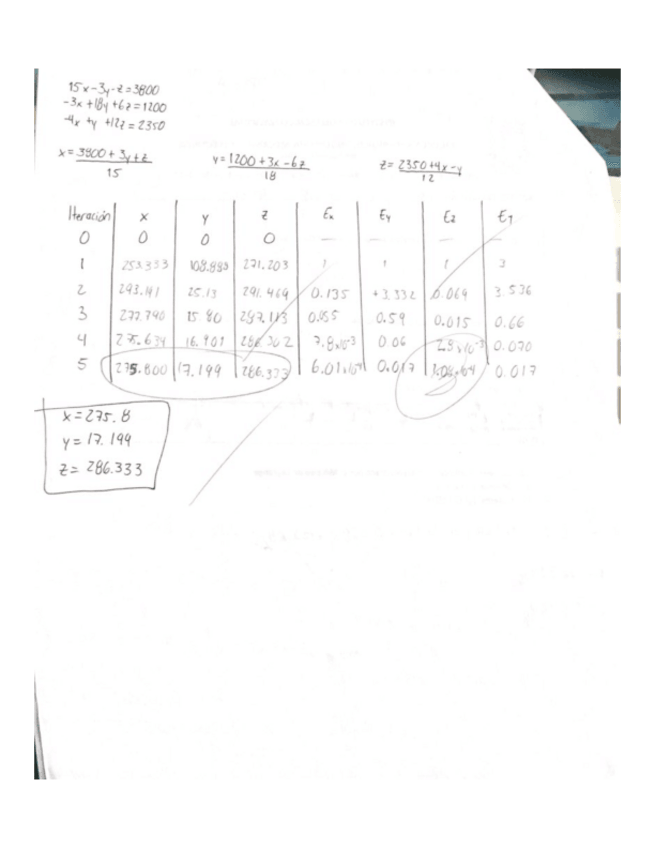 15x-3y-z=3800
-3x+18y+6z=1200
-4x+y+12z=2350
x=3800+3y+z/15 y=1200+3x-6z/18 z=2350+4x-y/12
Iteración x y z Ex Ey Ez ET
0 0 0 0 — — — —
1 253.333 108.883 271.203 1 1 1 3
2 293.141 25.13 291.469 0.135 +3.332 0.069 3.536
3 277.790 15.80 287.113 0.055 0.59 0.015 0.66
4 275.634 16.901 286.302 7.8x10⁻³ 0.06 2.8x10⁻³ 0.070
5 275.800 17.199 286.333 6.01x10⁻⁴ 0.017 0.017
x=275.8
y=17.199
z=286.333